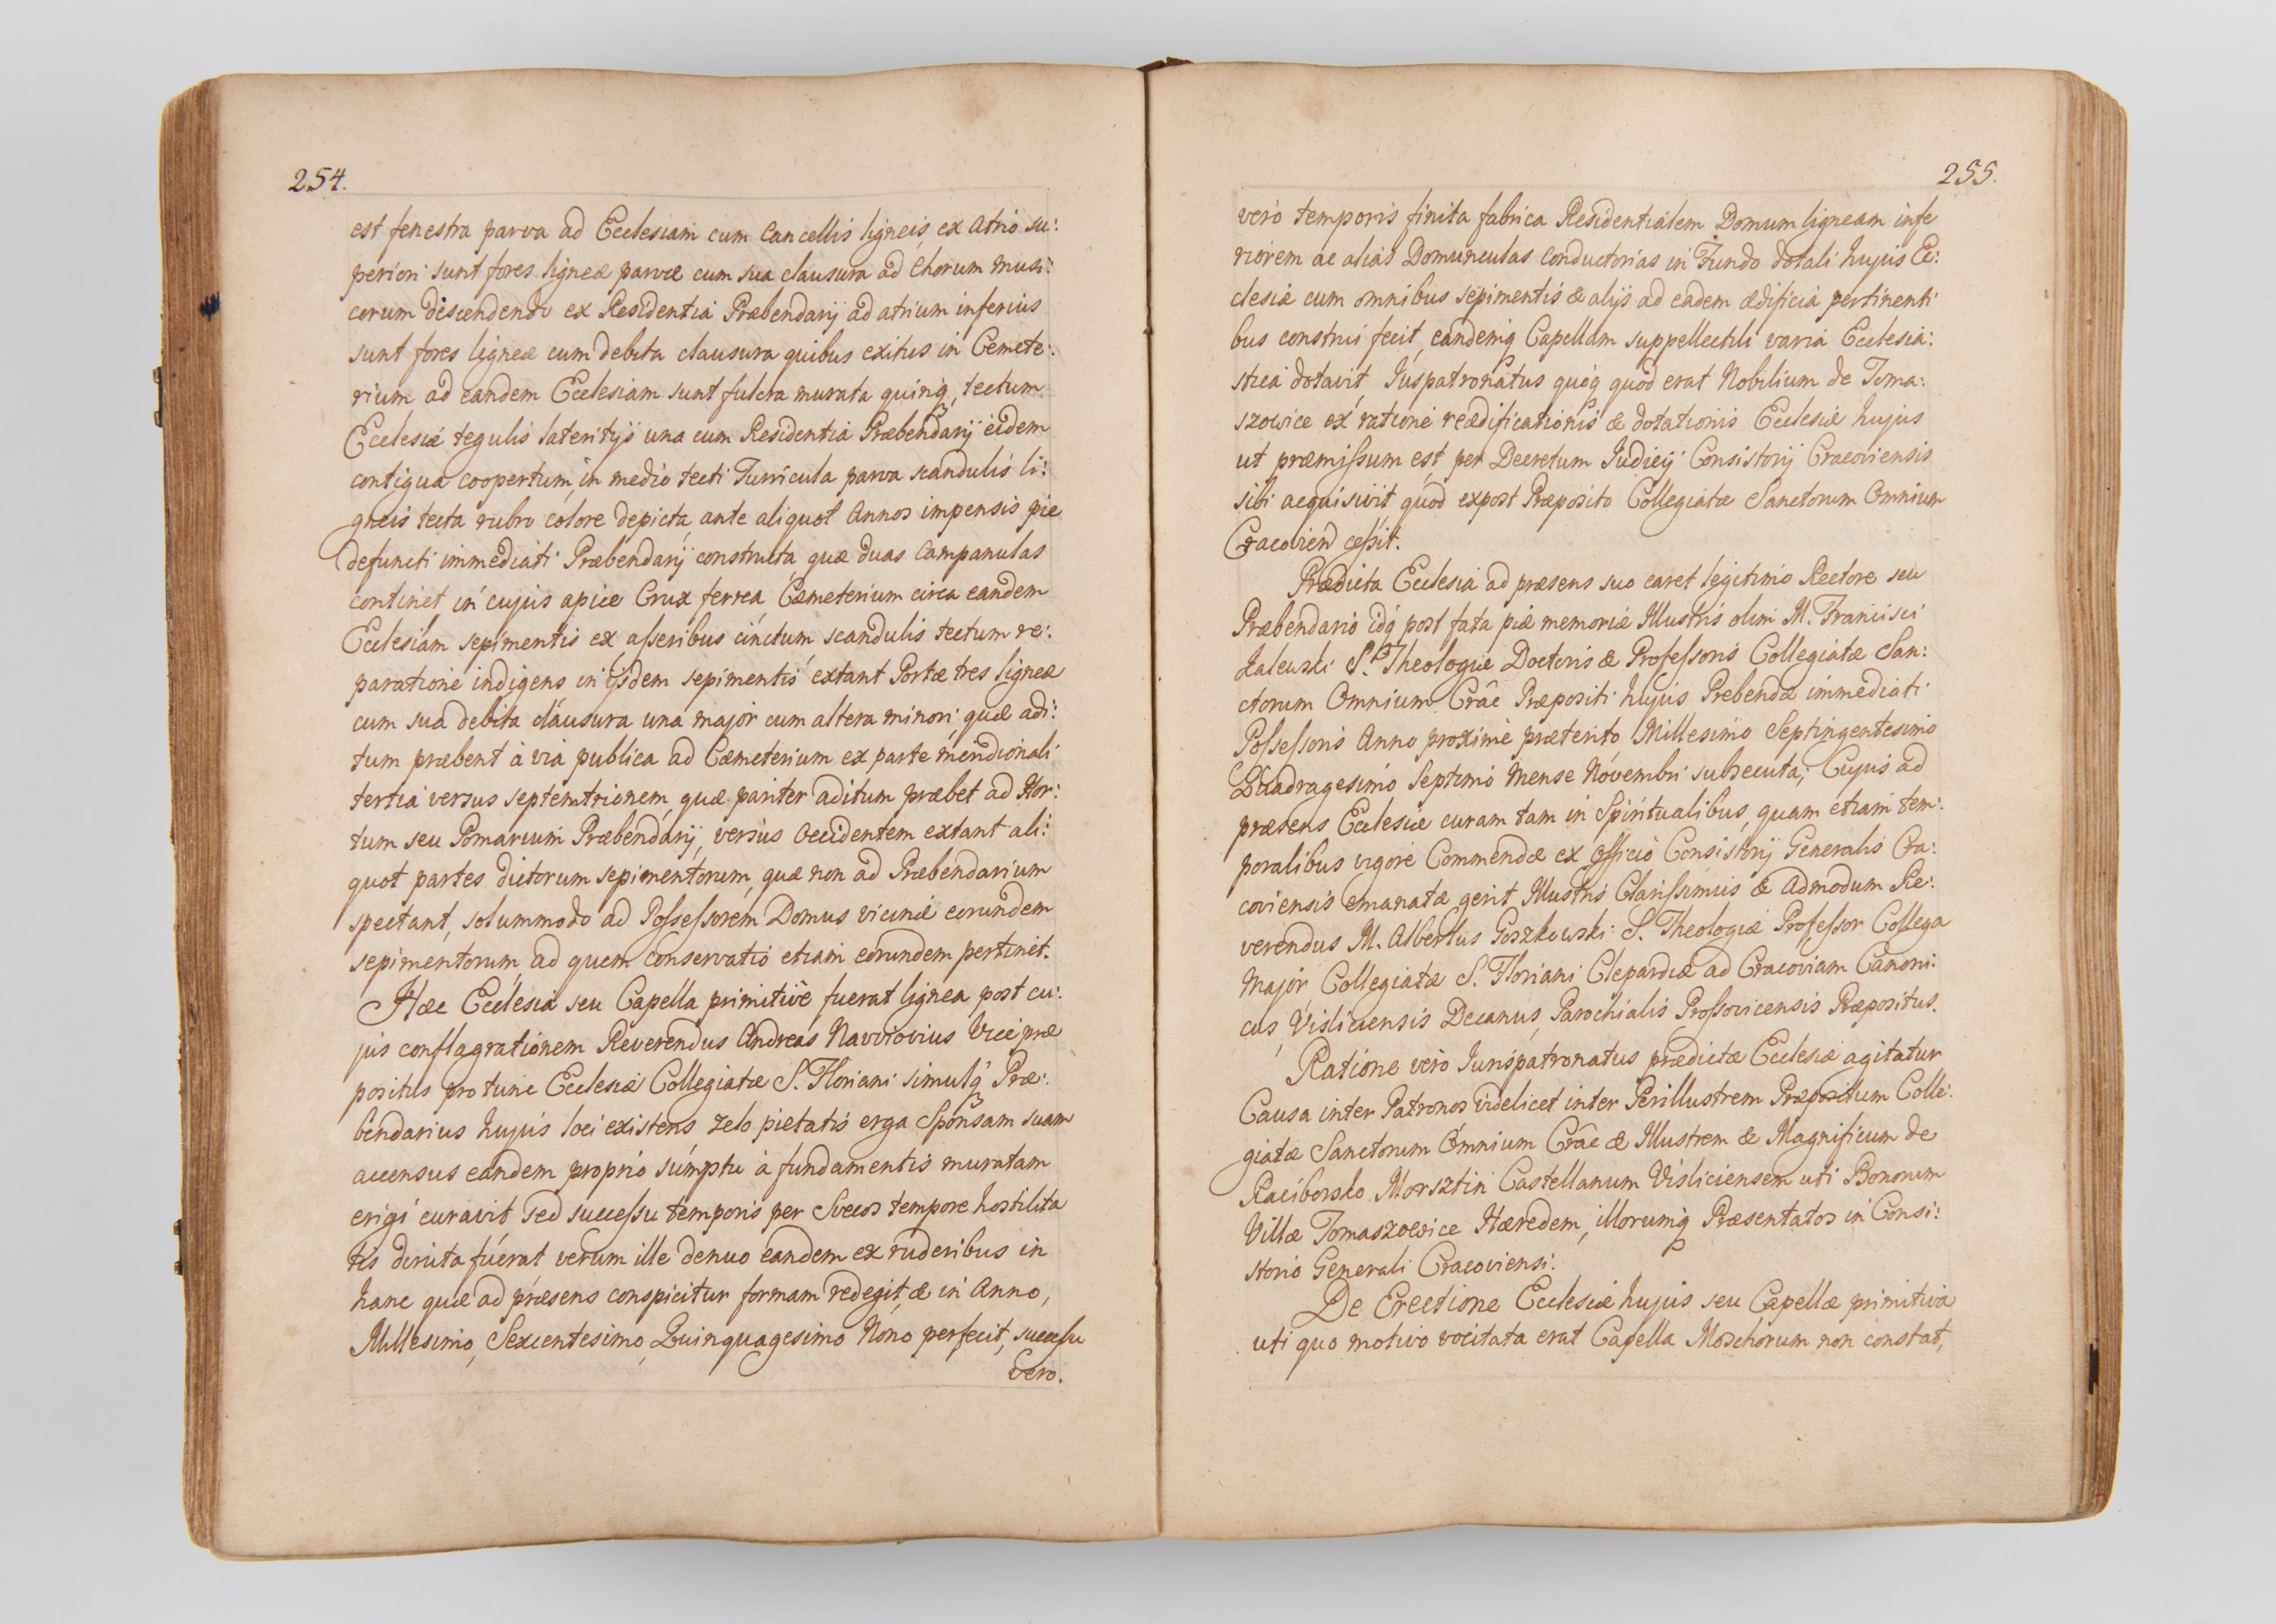 254.
est fenestra parva ad Ecclesiam cum Cancellis ligneis, ex Atrio su:
periori sunt fores ligneæ parvæ cum sua clausura ad Chorum musi:
corum descendendo ex Residentia Præbendarij ad atrium inferius
sunt fores ligneæ cum debita clausura quibus exitus in Cemete:
rium ad eandem Ecclesiam sunt fulcra murata quinq, tectum
Ecclesiæ tegulis lateritijs una cum Residentia Præbendarij eidem
contigua coopertum, in medio tecti Turricula parva scandulis li:
gneis tecta rubro colore depicta, ante aliquot Annos impensis pie
defuncti immediati Præbendarij constructa, quæ duas Campanulas
continet in cujus apice Crux ferrea, Cæmeterium circa eandem
Ecclesiam sepimentis ex asseribus cinctum scandulis tectum re:
paratione indigens in ijsdem sepimentis extant Portæ tres ligneæ
cum sua debita clausura una major cum altera minori quæ adi:
tum præbent à via publica ad Cæmeterium ex parte meridionali
tertia versus septemtrionem, quæ pariter aditum præbet ad Hor:
tum seu Pomarium Præbendarij, versus Occidentem extant ali:
quot partes dictorum sepimentorum, quæ non ad Præbendarium
spectant, solummodo ad Possessorem Domus vicinæ eorundem
sepimentorum, ad quem conservatio etiam eorundem pertinet.
Hæc Ecclesia seu Capella primitive fuerat lignea, post cu:
jus conflagrationem Reverendus Andreas Navrovius Vice præ
positus pro tunc Ecclesiæ Collegiatæ S. Floriani simulq Præ:
bendarius hujus loci existens, zelo pietatis erga Sponsam suam
accensus eandem proprio sumptu à fundamentis muratam
erigi curavit, sed successu temporis per Svecos tempore hostilita
tis diruta fuerat verum ille denuo eandem ex ruderibus in
hanc quæ ad præsens conspicitur formam redegit, & in Anno,
Millesimo, Sexcentesimo, Quinquagesimo Nono perfecit, successu
vero.
255.
vero temporis finita fabrica Residentialem Domum ligneam infe
riorem ac alias Domunculas conductorias in Fundo dotali hujus Ec:
clesiæ cum omnibus sepimentis & alijs ad eadem ædificia pertinenti
bus construi fecit, eandemq Capellam suppellectili varia Ecclesia:
stica dotavit, Juspatronatus quoq quod erat Nobilium de Toma:
szowice ex ratione reædificationis & dotationis Ecclesiæ hujus
ut præmissum est, per Decretum Judicij Consistorij Cracoviensis
sibi acquisivit, quod expost Præposito Collegiatæ Sanctorum Omnium
Cracovien cessit.
Prædicta Ecclesia ad præsens suo caret legitimo Rectore seu
Præbendario idq post fata piæ memoriæ Illustris olim M. Francisci
Zalewski S. Theologiæ Doctoris & Professoris Collegiatæ San:
ctorum Omnium Crãc Præpositi hujus Prebendæ immediati
Possessoris Anno proximè præterito Millesimo Septingentesimo
Quadragesimo Septimo Mense Novembri subsecuta; Cujus ad
præsens Ecclesiæ curam tam in Spiritualibus, quam etiam tem:
poralibus vigore Commendæ ex Officio Consistorij Generalis Cra:
coviensis emanatæ gerit Illustris Clarissimus & Admodum Re:
verendus M. Albertus Goszkowski S. Theologiæ Professor Collega
Major Collegiatæ S. Floriani Clepardiæ ad Cracoviam Canoni:
cus, Visliciensis Decanus, Parochialis Prossovicensis Præpositus.
Ratione vero Jurispatronatus prædictæ Ecclesiæ agitatur
Causa inter Patronos videlicet inter Perillustrem Præpositum Colle:
giatæ Sanctorum Omnium Crãc & Illustrem & Magnificum de
Raciborsko Morsztin Castellanum Visliciensem uti Bonorum
Villæ Tomaszowice Hæredem, illorumq Præsentatos in Consi:
storio Generali Cracoviensi.
De Erectione Ecclesiæ hujus seu Capellæ primitiva
uti quo motivo vocitata erat Capella Moschorum non constat,